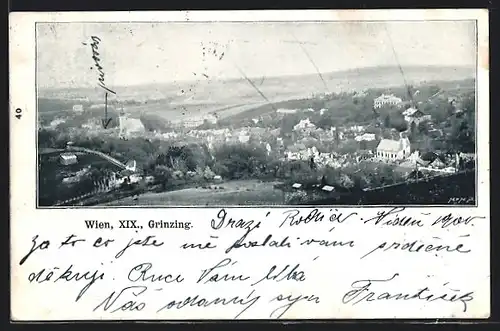 Sievering
40
Wien, XIX., Grinzing. Drazí Rodiče. Vídeň 1900
Za to co jste mě poslali vám srdečně
děkuji. Ruce Vám líbá
Váš oddaný syn František